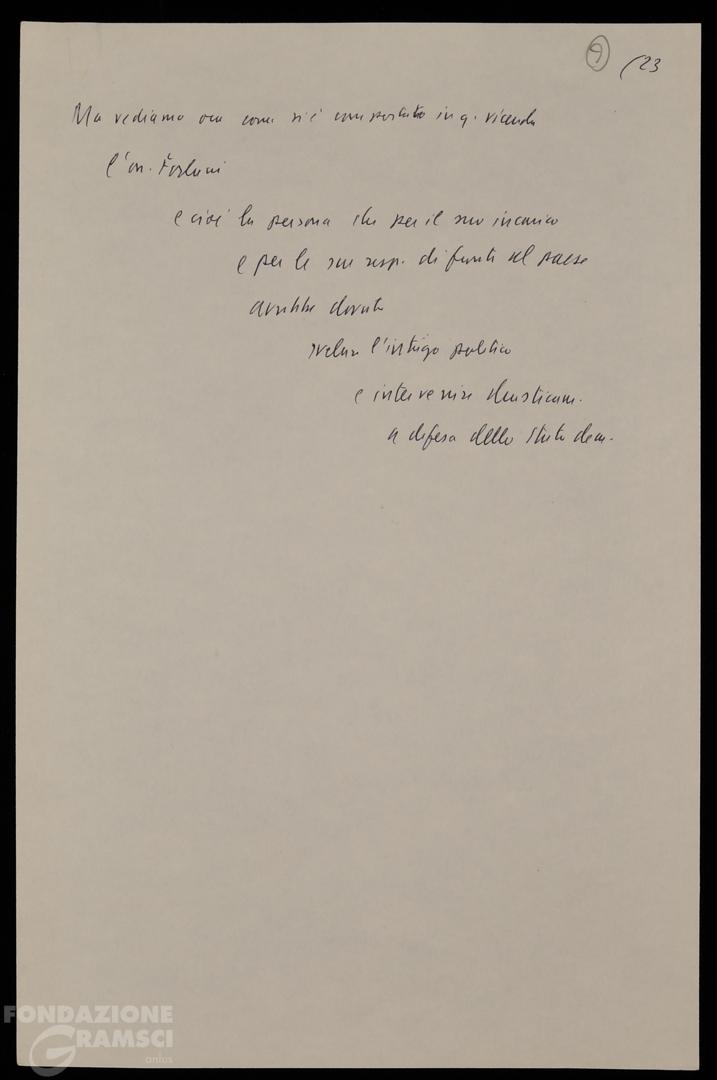 9 (23
Ma vediamo ora come si è comportato in q. vicenda
l'on. Forlani
e cioè la persona che per il suo incarico
e per le sue resp. di fronte al paese
avrebbe dovuto
svelare l'intrigo politico
e intervenire drasticam.
a difesa dello Stato dem.
FONDAZIONE
GRAMSCI
onlus